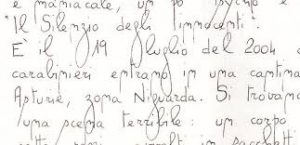 e maniacale, un po' psycho e
"Il Silenzio degli innocenti".
È il 19 luglio del 2004
carabinieri entrano in una cantina
Apturie, zona Niguarda. Si trovano
una scena terribile: un corpo